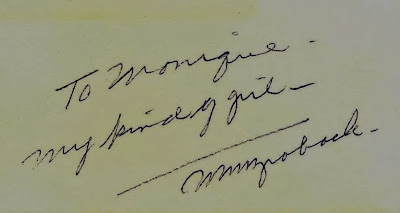 To Monique -
my kind of girl -